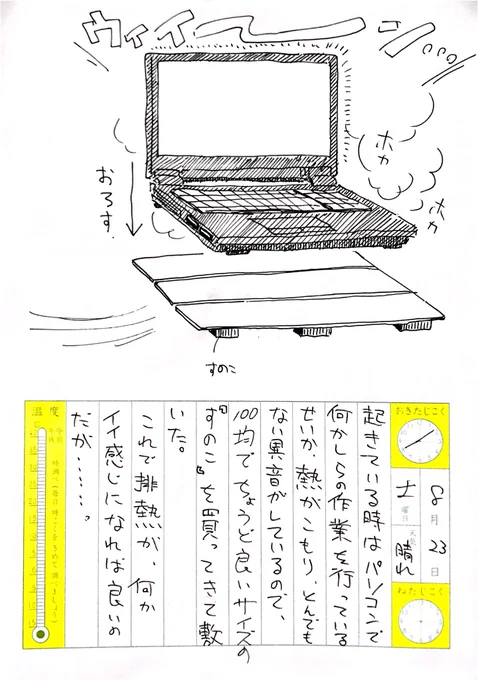 ウィイーーン。。。
ホカ
ホカ
おろす。
すのこ
おきたじこく
8月23日
土曜日
天気 晴れ
ねたじこく
起きている時はパソコンで
何かしらの作業を行っている
せいか、熱がこもり、とんでも
ない異音がしているので、
100均でちょうど良いサイズの
「すのこ」を買ってきて敷
いた。
これで排熱が、何か
イイ感じになれば良いの
だが……。
温度
℃
午前
午後
時調べ(毎日時こくをきめて調べましょう)